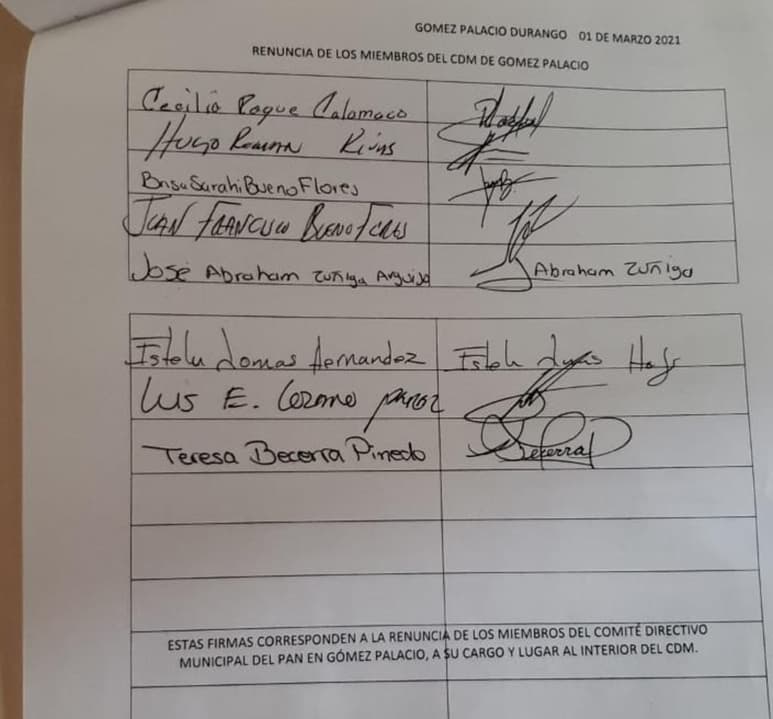 GOMEZ PALACIO DURANGO 01 DE MARZO 2021
RENUNCIA DE LOS MIEMBROS DEL CDM DE GOMEZ PALACIO
Cecilia Roque Calamaco
Hugo Roman Rivas
Brisa Sarahi Bueno Flores
JUAN FRANCISCO BUENO FLORES
José Abraham Zuñiga Arguijo Abraham Zuñiga
Estela Lomas Hernandez Estela
Luis E. Lozano perez
Teresa Becerra Pinedo Becerra P
ESTAS FIRMAS CORRESPONDEN A LA RENUNCIA DE LOS MIEMBROS DEL COMITÉ DIRECTIVO
MUNICIPAL DEL PAN EN GÓMEZ PALACIO, A SU CARGO Y LUGAR AL INTERIOR DEL CDM.